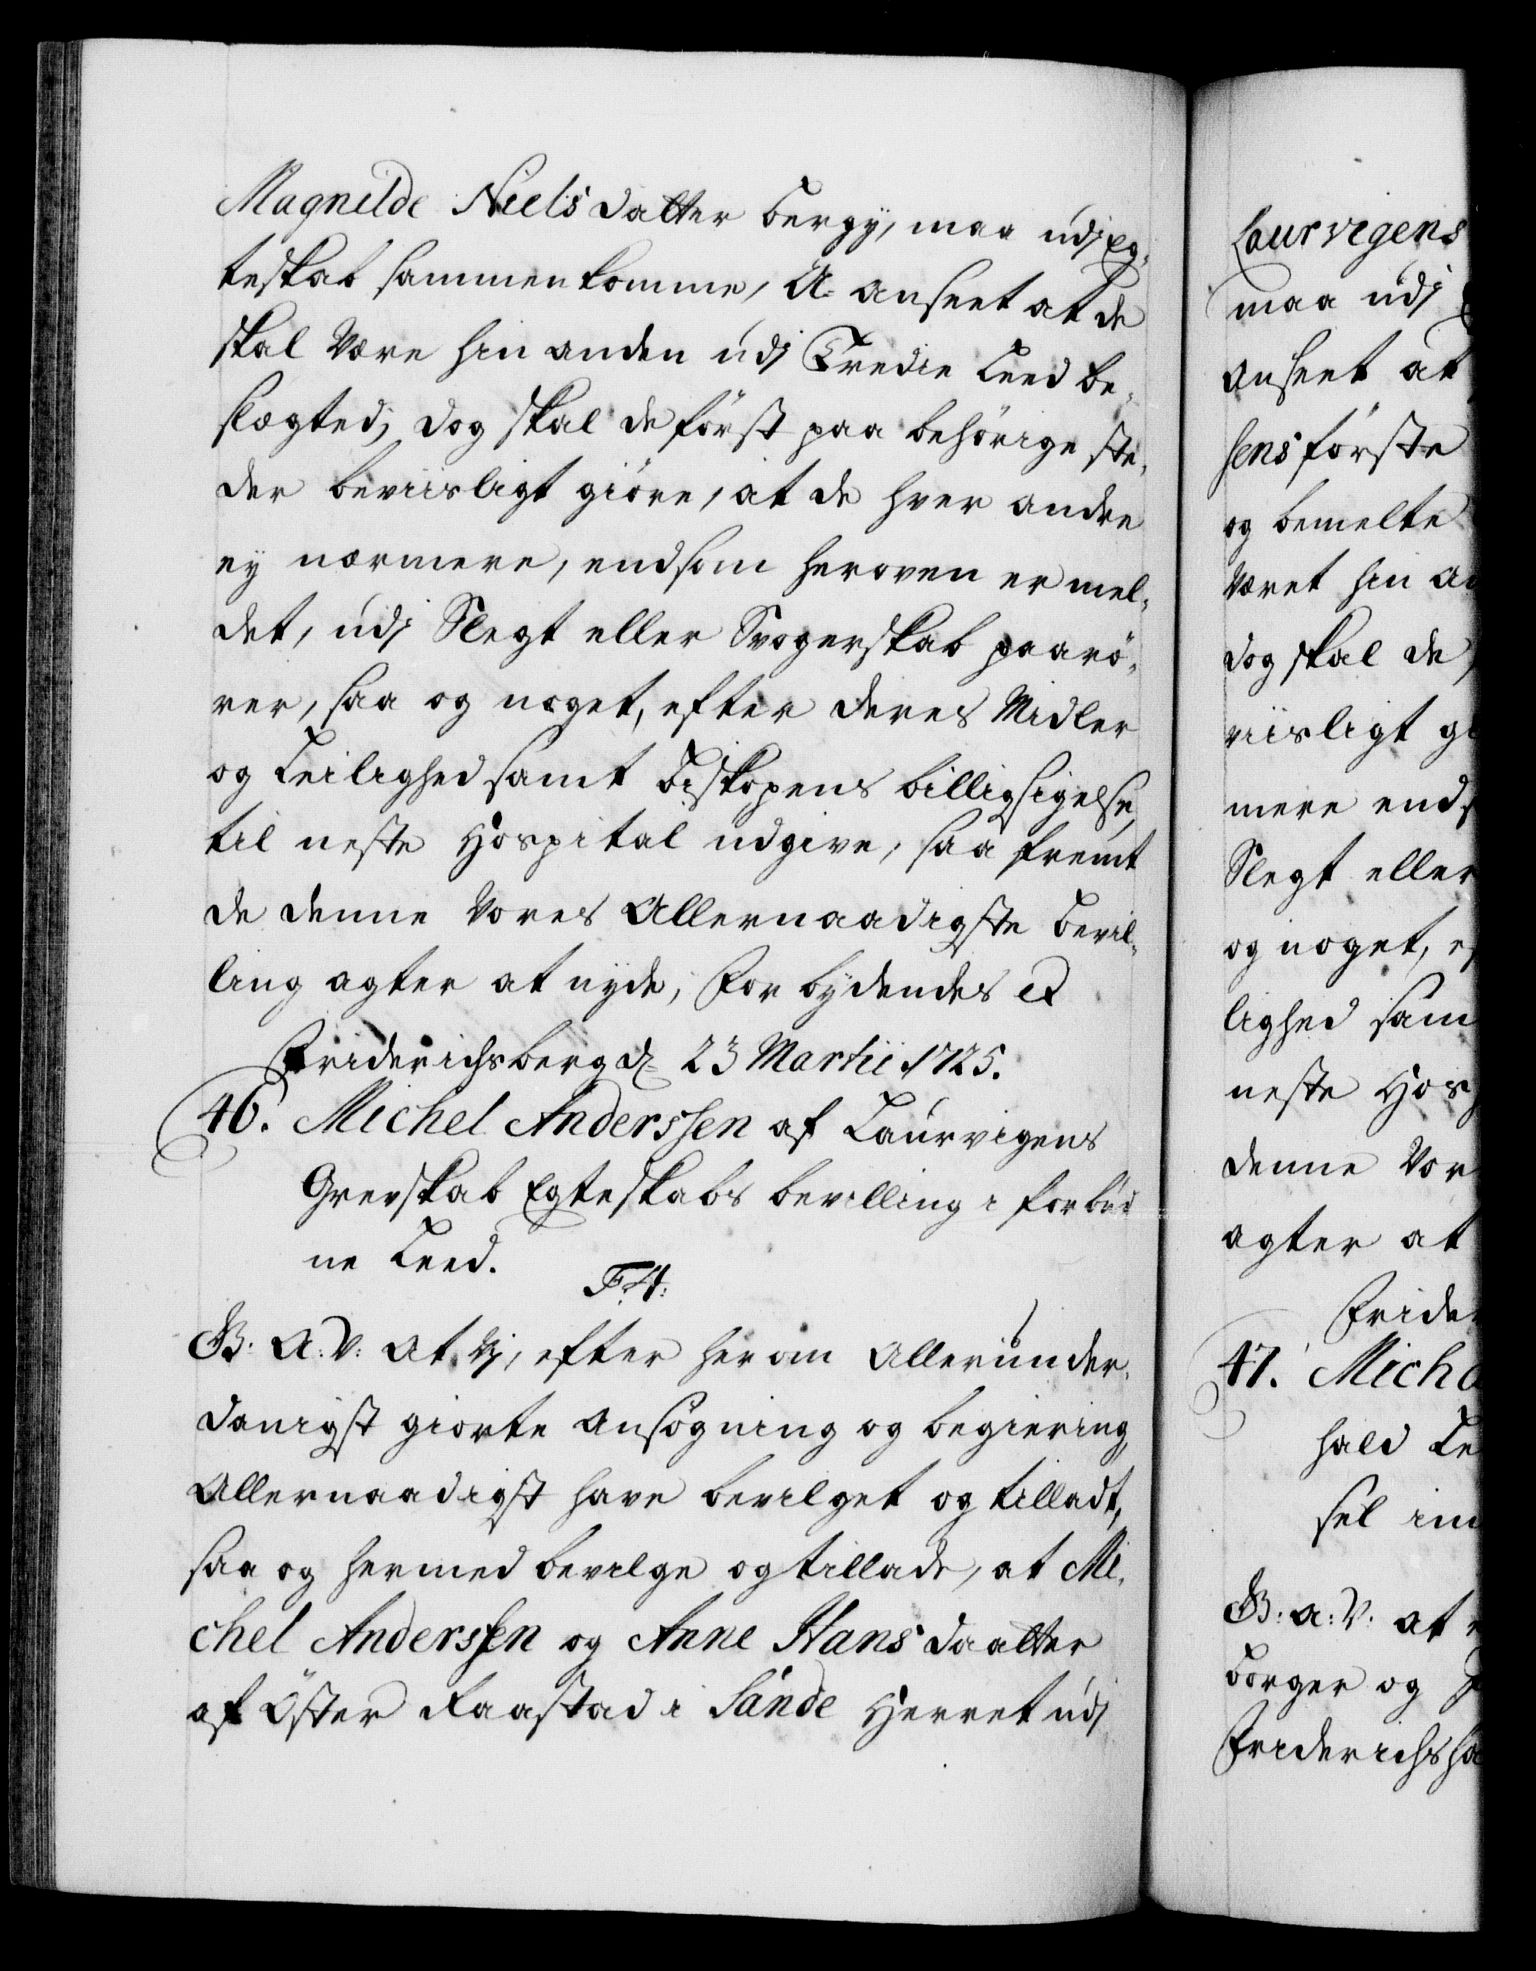 Magnilde Niels datter Bergy, maa udj Eg-
teskab sammenkomme, U-anseet at de
skal være hin anden udj Tredie Leed be-
slægted; dog skal de först paa behörige ste-
der beviisligt giöre, at de hver andre
ey nærmere, endsom heroven er mel-
det, udj Slegt eller Svogerskab paarö-
rer, saa og noget, efter deres Midler
og Leilighed samt Biskopens billigsigelse,
til neste Hospital udgive, saa fremt
de denne Vores Allernaadigste Bevil-
ling agter at nyde; Forbydendes etc
Friderichsberg d. 23 Martii 1725.
46. Michel Anderssen af Laurvigens
Grevskab Egteskabs bevilling i forbud
ne Leed.
F. 4:
G: A: V: At Vj, efter herom Allerunder-
danigst giorte Ansögning og begiering,
Allernaadigst have bevilget og tilladt,
saa og hermed bevilge og tillade, at Mi-
chel Anderssen og Anne Hans daatter
af Öster Raastad i Sande Herret udj
Laurvigens
maa udj
anseet at
sens förste
og bemelte
været hin an
dog skal de
viisligt gi
mere ends
Slegt eller
og noget, ef
lighed sam
neste Hosp
denne Vor
agter at
Frider
47. Micha
hald Le
sel in
G: A: V: at
Borger og
Friderichsha